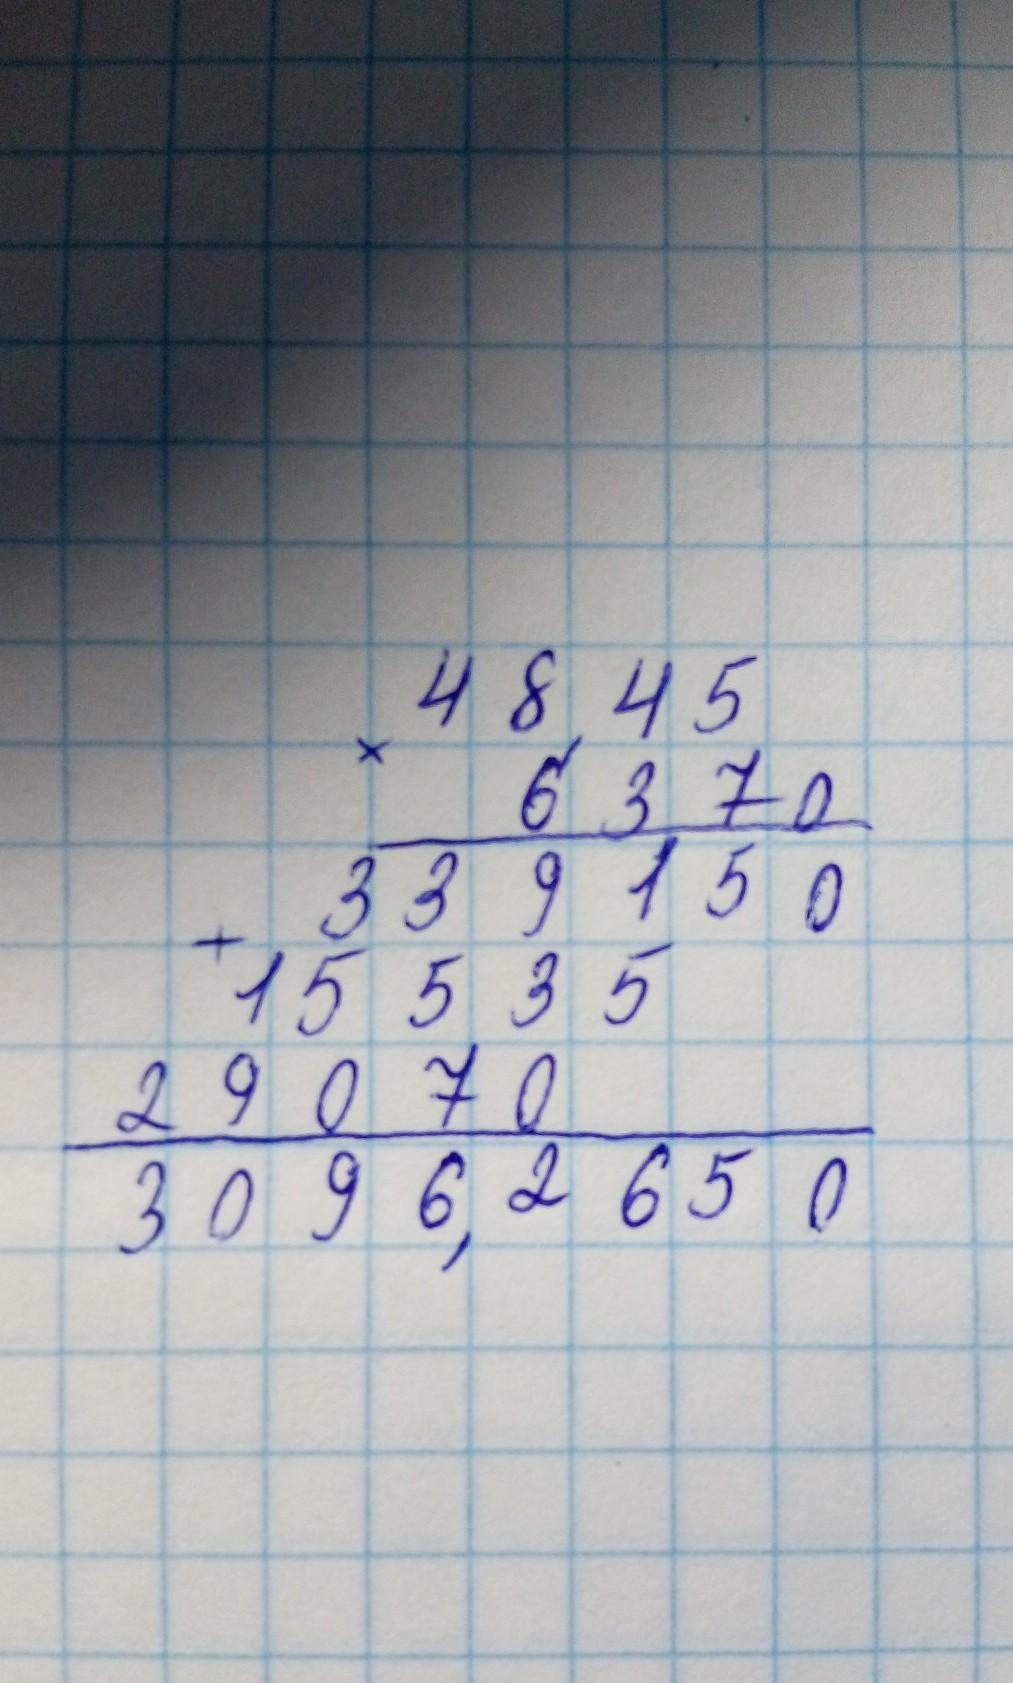 48,45
×
6370
339150
+
15535
29070
3096,2650